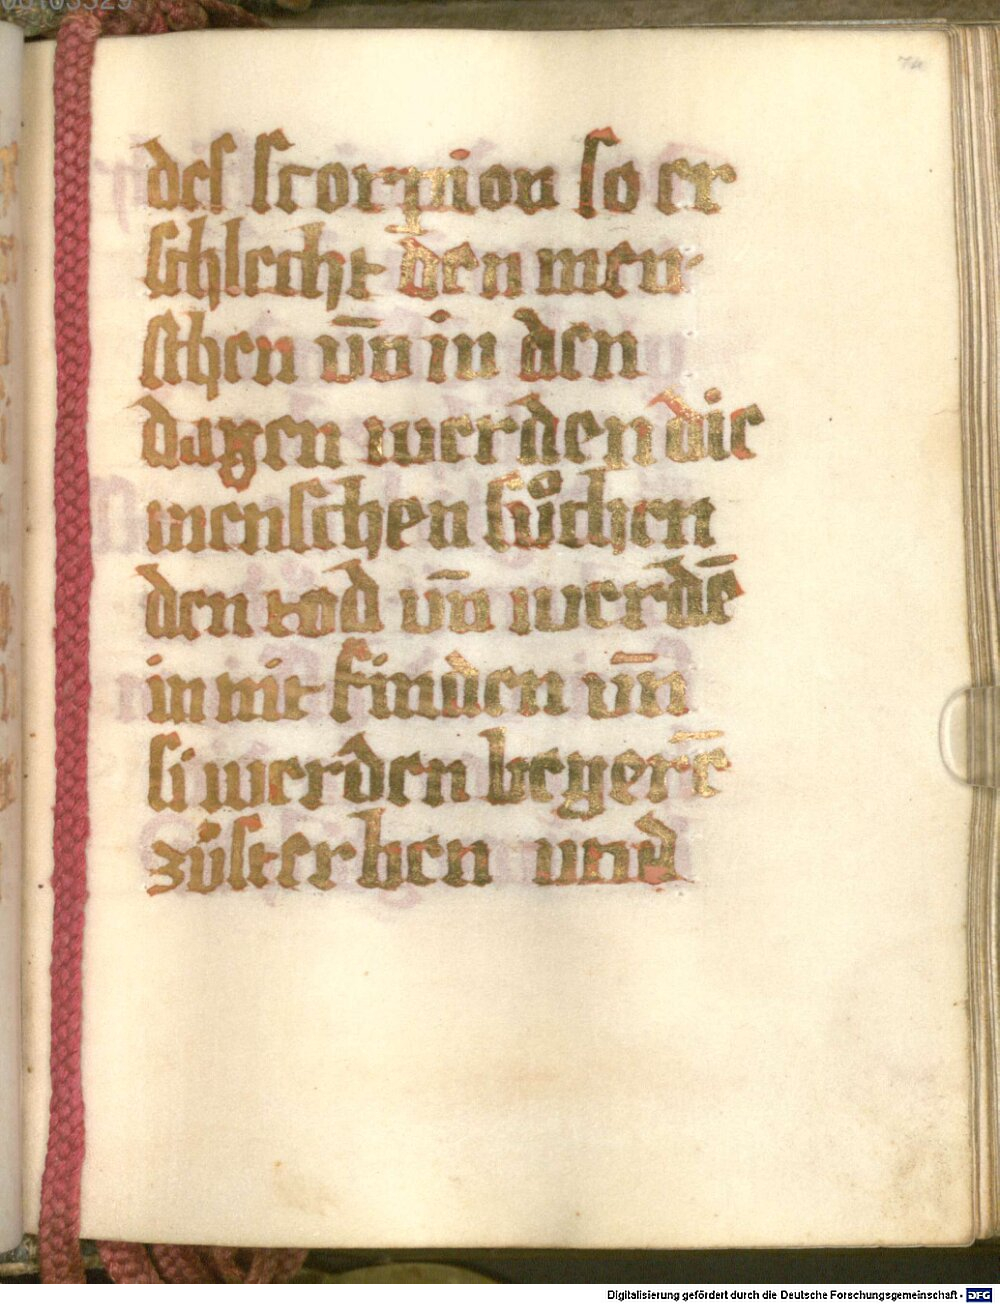 74
des scorpion so er
schlecht den men-
schen vn̄ in den
dagen werden die
menschen sůchen
den tod vn̄ werdē
in nit finden vn̄
si werden begerē
zůsterben und
Digitalisierung gefördert durch die Deutsche Forschungsgemeinschaft - DFG